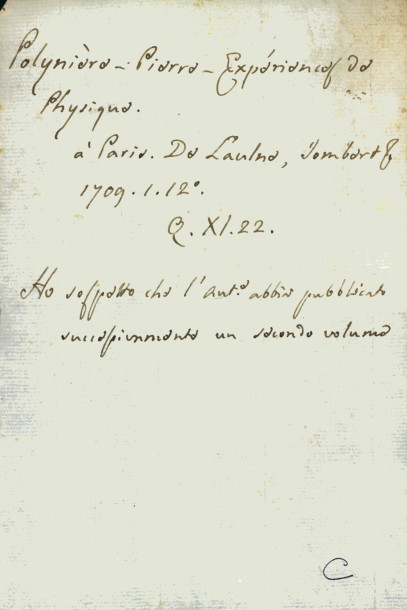 Polynière - Pierre - Expériences de
Physique.
à Paris. De Laulne, Jombert &
1709. 1. 12°.
Q. XI. 22.
Ho sospetto che l'Aut.e abbia pubblicato
successivamente un secondo volume
C